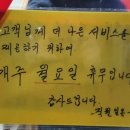 고객님께 더 나은 서비스를
제공하기 위하여
매주 월요일 휴무입니다
감사드립니다.